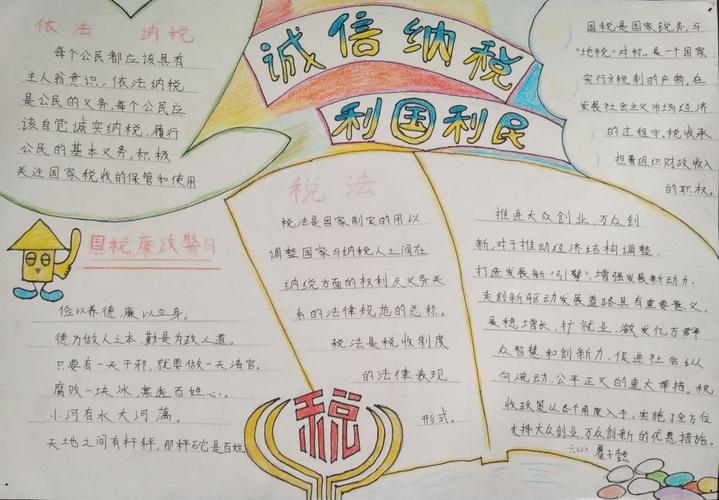 诚信纳税
利国利民
依法 纳税
每个公民都应该具有
主人翁意识、依法纳税
是公民的义务,每个公民应
该自觉诚实纳税,履行
公民的基本义务,积极
关注国家税收的保管和使用
国税是国家税务,与
"地税"对称,是一个国家
实行分税制的产物,在
发展社会主义市场经济
的过程中,税收承
担着组织财政收入
的职权。
国税廉政警句
俭以养德,廉以立身。
德为做人之本,勤是为政之道。
只要有一天干邪,就要做一天清官。
腐败一块冰,寒透百姓心。
小河有水大河满。
天地之间有杆秤,那秤砣是百姓。
税法
税法是国家制定的用以
调整国家与纳税人之间在
纳税方面的权利及义务关
系的法律规范的总称。
税法是税收制度
的法律表现
形式。
推进大众创业,万众创
新,对于推动经济结构调整,
打造发展新"引擎",增强发展新动力,
走创新驱动发展道路具有重要意义,
是稳增长,扩就业,激发亿万群
众智慧和创新力,促进社会纵
向流动,公平正义的重大举措。税
收政策从各个角度入手,实施了全方位
支持大众创业,万众创新的优惠措施。
税